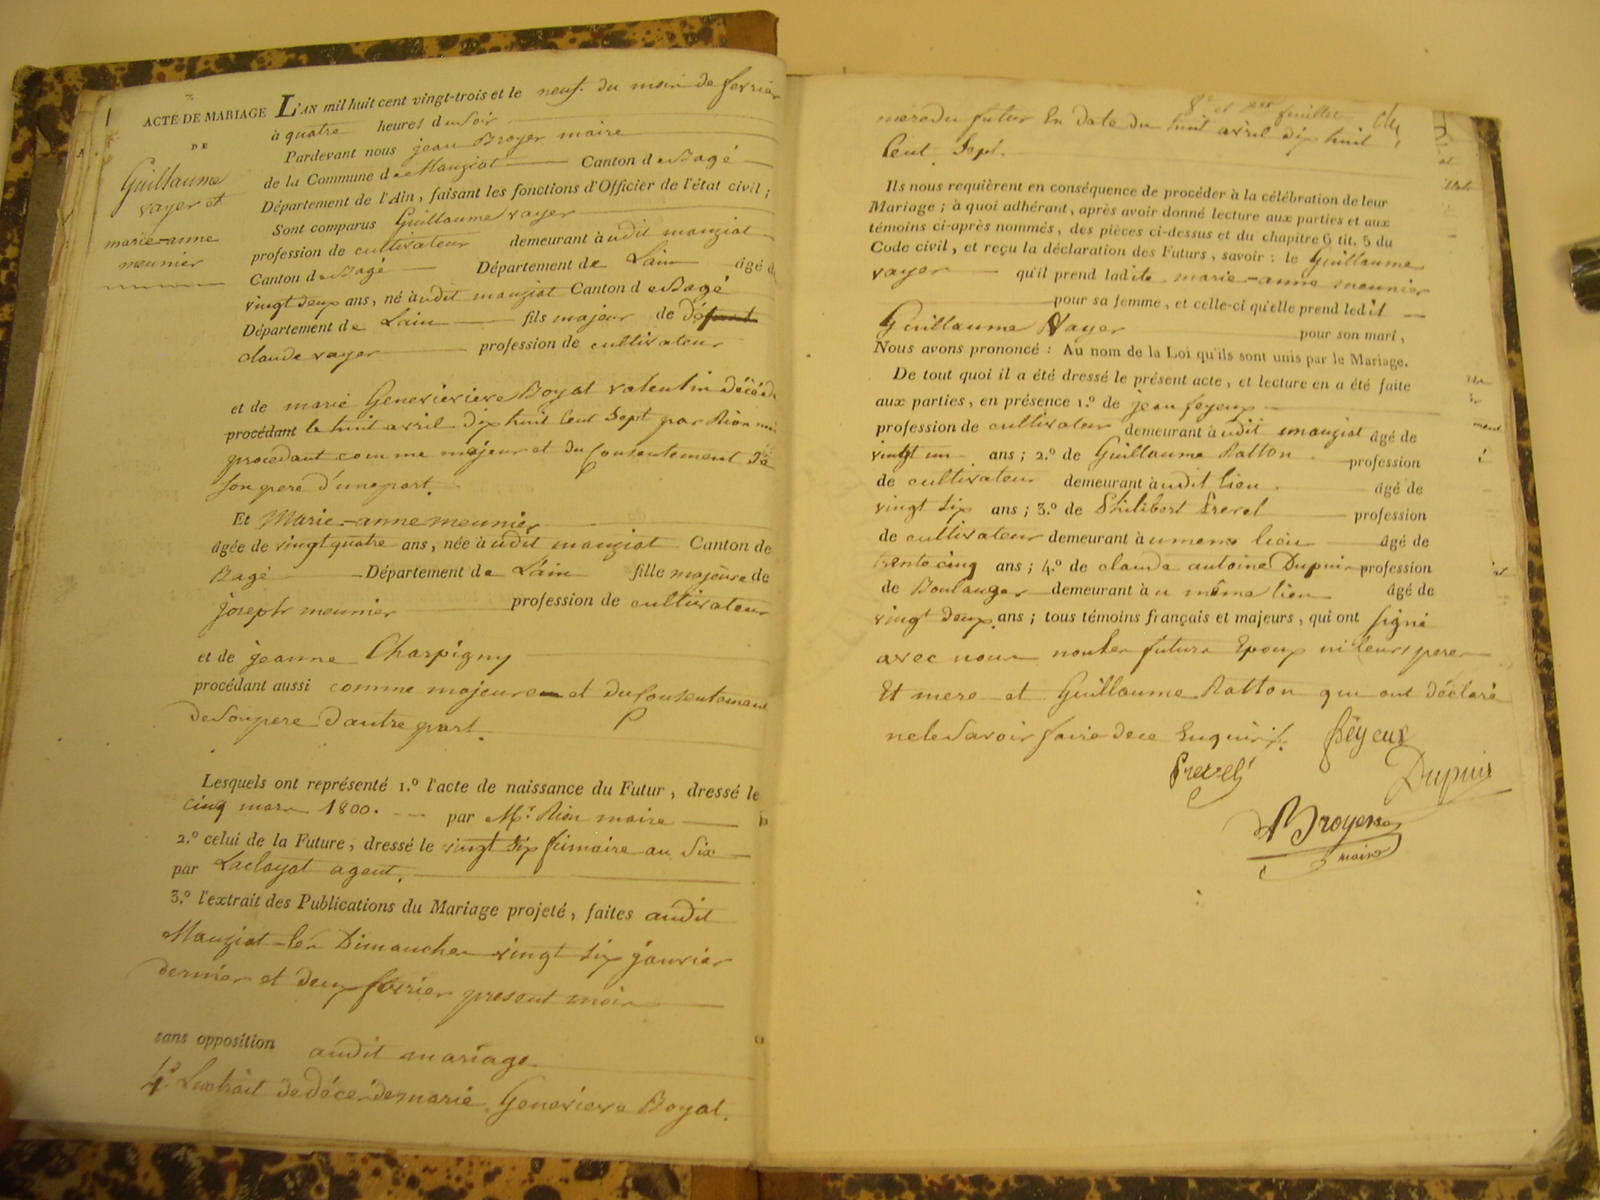 ACTE DE MARIAGE
DE
Guillaume
vayer et
marie-anne
meunier
L'AN mil huit cent vingt-trois et le neuf du mois de fevrier
à quatre heures du soir
Pardevant nous jean Broyer maire
de la Commune de Manziat Canton de Bagé
Département de l'Ain, faisant les fonctions d'Officier de l'état civil ;
Sont comparus Guillaume vayer
profession de cultivateur demeurant audit manziat
Canton de Bagé Département de Lain âgé de
vingt deux ans, né audit manziat Canton de Bagé
Département de Lain fils majeur de défunt
claude vayer profession de cultivateur
et de marie Genevieve Boyat valentin décédé
procédant le huit avril dix huit Cent Sept par Rion
procedant comme majeur et du Consentement de
son pere d'une part.
Et Marie-anne meunier
âgée de vingt quatre ans, née audit manziat Canton de
Bagé Département de Lain fille majeure de
joseph meunier profession de cultivateur
et de jeanne Charpigny
procédant aussi comme majeure et du Consentement
de Son pere d'autre part.
Lesquels ont représenté 1.º l'acte de naissance du Futur, dressé le
cinq mars 1800. par Mr. Rion maire
2.º celui de la Future, dressé le vingt six frimaire an Six
par Laclayat agent.
3.º l'extrait des Publications du Mariage projeté, faites audit
Manziat les Dimanches vingt six janvier
dernier et deux fevrier present mois
sans opposition audit mariage.
4.º Lextrait de décés de marie Genevieve Boyat.
8e et feuillet
mere du futur En date du huit avril dix huit
Cent Sept.
Ils nous requièrent en conséquence de procéder à la célébration de leur
Mariage ; à quoi adhérant, après avoir donné lecture aux parties et aux
témoins ci-après nommés, des pièces ci-dessus et du chapitre 6 tit. 5 du
Code civil, et reçu la déclaration des Futurs, savoir : le Guillaume
vayer qu'il prend ladite marie-anne meunier
pour sa femme, et celle-ci qu'elle prend ledit
Guillaume Vayer pour son mari,
Nous avons prononcé : Au nom de la Loi qu'ils sont unis par le Mariage.
De tout quoi il a été dressé le présent acte, et lecture en a été faite
aux parties, en présence 1.º de jean feyeux
profession de cultivateur demeurant audit manziat âgé de
vingt un ans ; 2.º de Guillaume Ratton profession
de cultivateur demeurant audit lieu. âgé de
vingt six ans ; 3.º de Philibert Prevel profession
de cultivateur demeurant au meme lieu âgé de
trente cinq ans ; 4.º de claude antoine Dupuis profession
de Boulanger demeurant au même lieu âgé de
vingt deux ans ; tous témoins français et majeurs, qui ont signé
avec nous non les futurs Epoux ni leurs peres
Et mere et Guillaume Ratton qui ont déclaré
ne le Savoir faire de ce Enquis. feyeux
Prevel
Dupuis
Broyer
maire